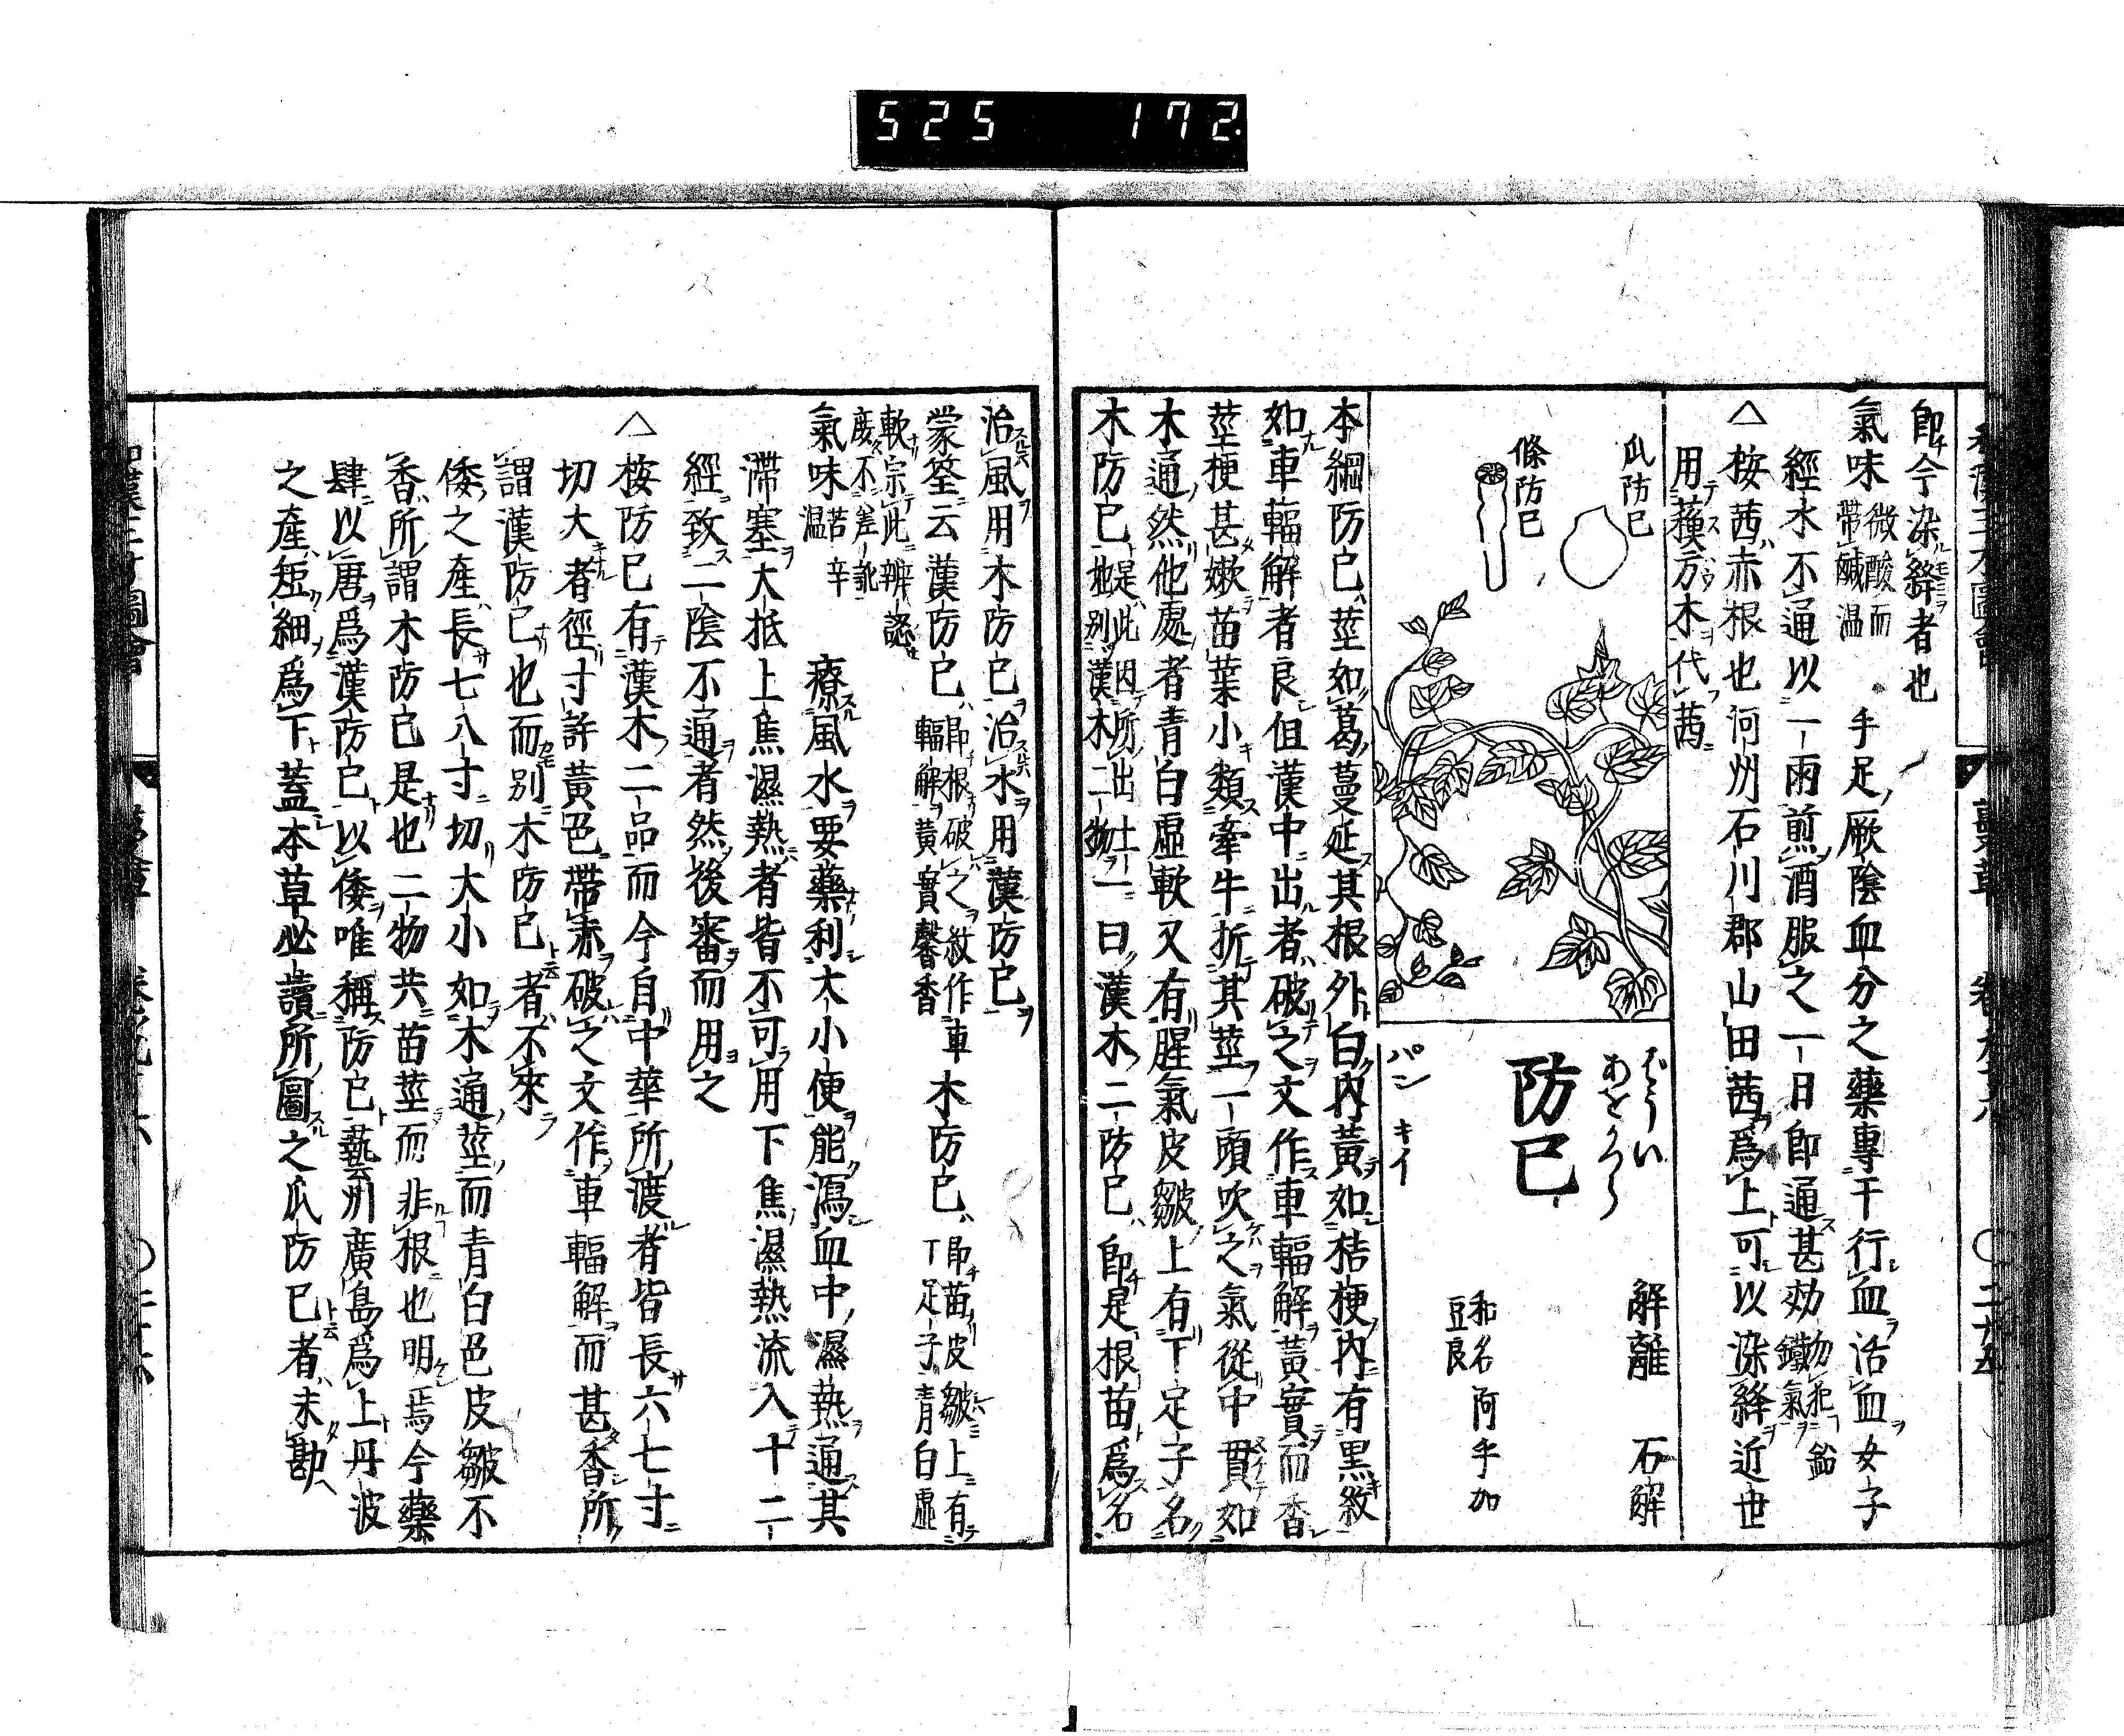 525 172.
即今染絳者也
氣味 微酸而帶鹹温 手足厥陰血分之藥專干行血活血女子
經水不通以一兩煎酒服之一日即通甚効 勿犯鉛鐵氣
△按茜赤根也河州石川郡山田茜爲上可以染絳近世
用蘓方木代茜
瓜防已
條防已
ばうい
あをかつら
防已
パン キイ
解離 石解
和名阿乎加豆良
本綱防已莖如葛蔓延其根外白内黃如桔梗内有黑紋
如車輻解者良但漢中出者破之文作車輻解黃實而香
莖梗甚嫩苗葉小類牽牛折其莖一頭吹之氣從中貫如
木通然他處者青白虛軟又有腥氣皮皺上有丁足子名
木防已 是此因所出土地別漢木二物 一曰漢木二防已即是根苗爲名
治風用木防已治水用漢防已
蒙筌云漢防已 即根破之紋作車輻解黃實馨香 木防已 即苗皮皺上有丁足子青白虛
軟宗此辨認庶不差訛
氣味 苦辛温 療風水要藥利大小便能瀉血中濕熱通其
滯塞大抵上焦濕熱者皆不可用下焦濕熱流入十二
經致二陰不通者然後審而用之
△按防已有漢木二品而今自中華所渡者皆長六七寸
切大者徑寸許黃色帶赤破之文作車輻解而甚香所
謂漢防已也而別木防已者不來
倭之產長七八寸切大小如木通莖而青白色皮皺不
香所謂木防已是也二物共苗莖而非根也明焉今藥
肆以唐爲漢防已以倭唯稱防已藝州廣島爲上丹波
之產短細爲下蓋本草必讀所圖之瓜防已者未勘